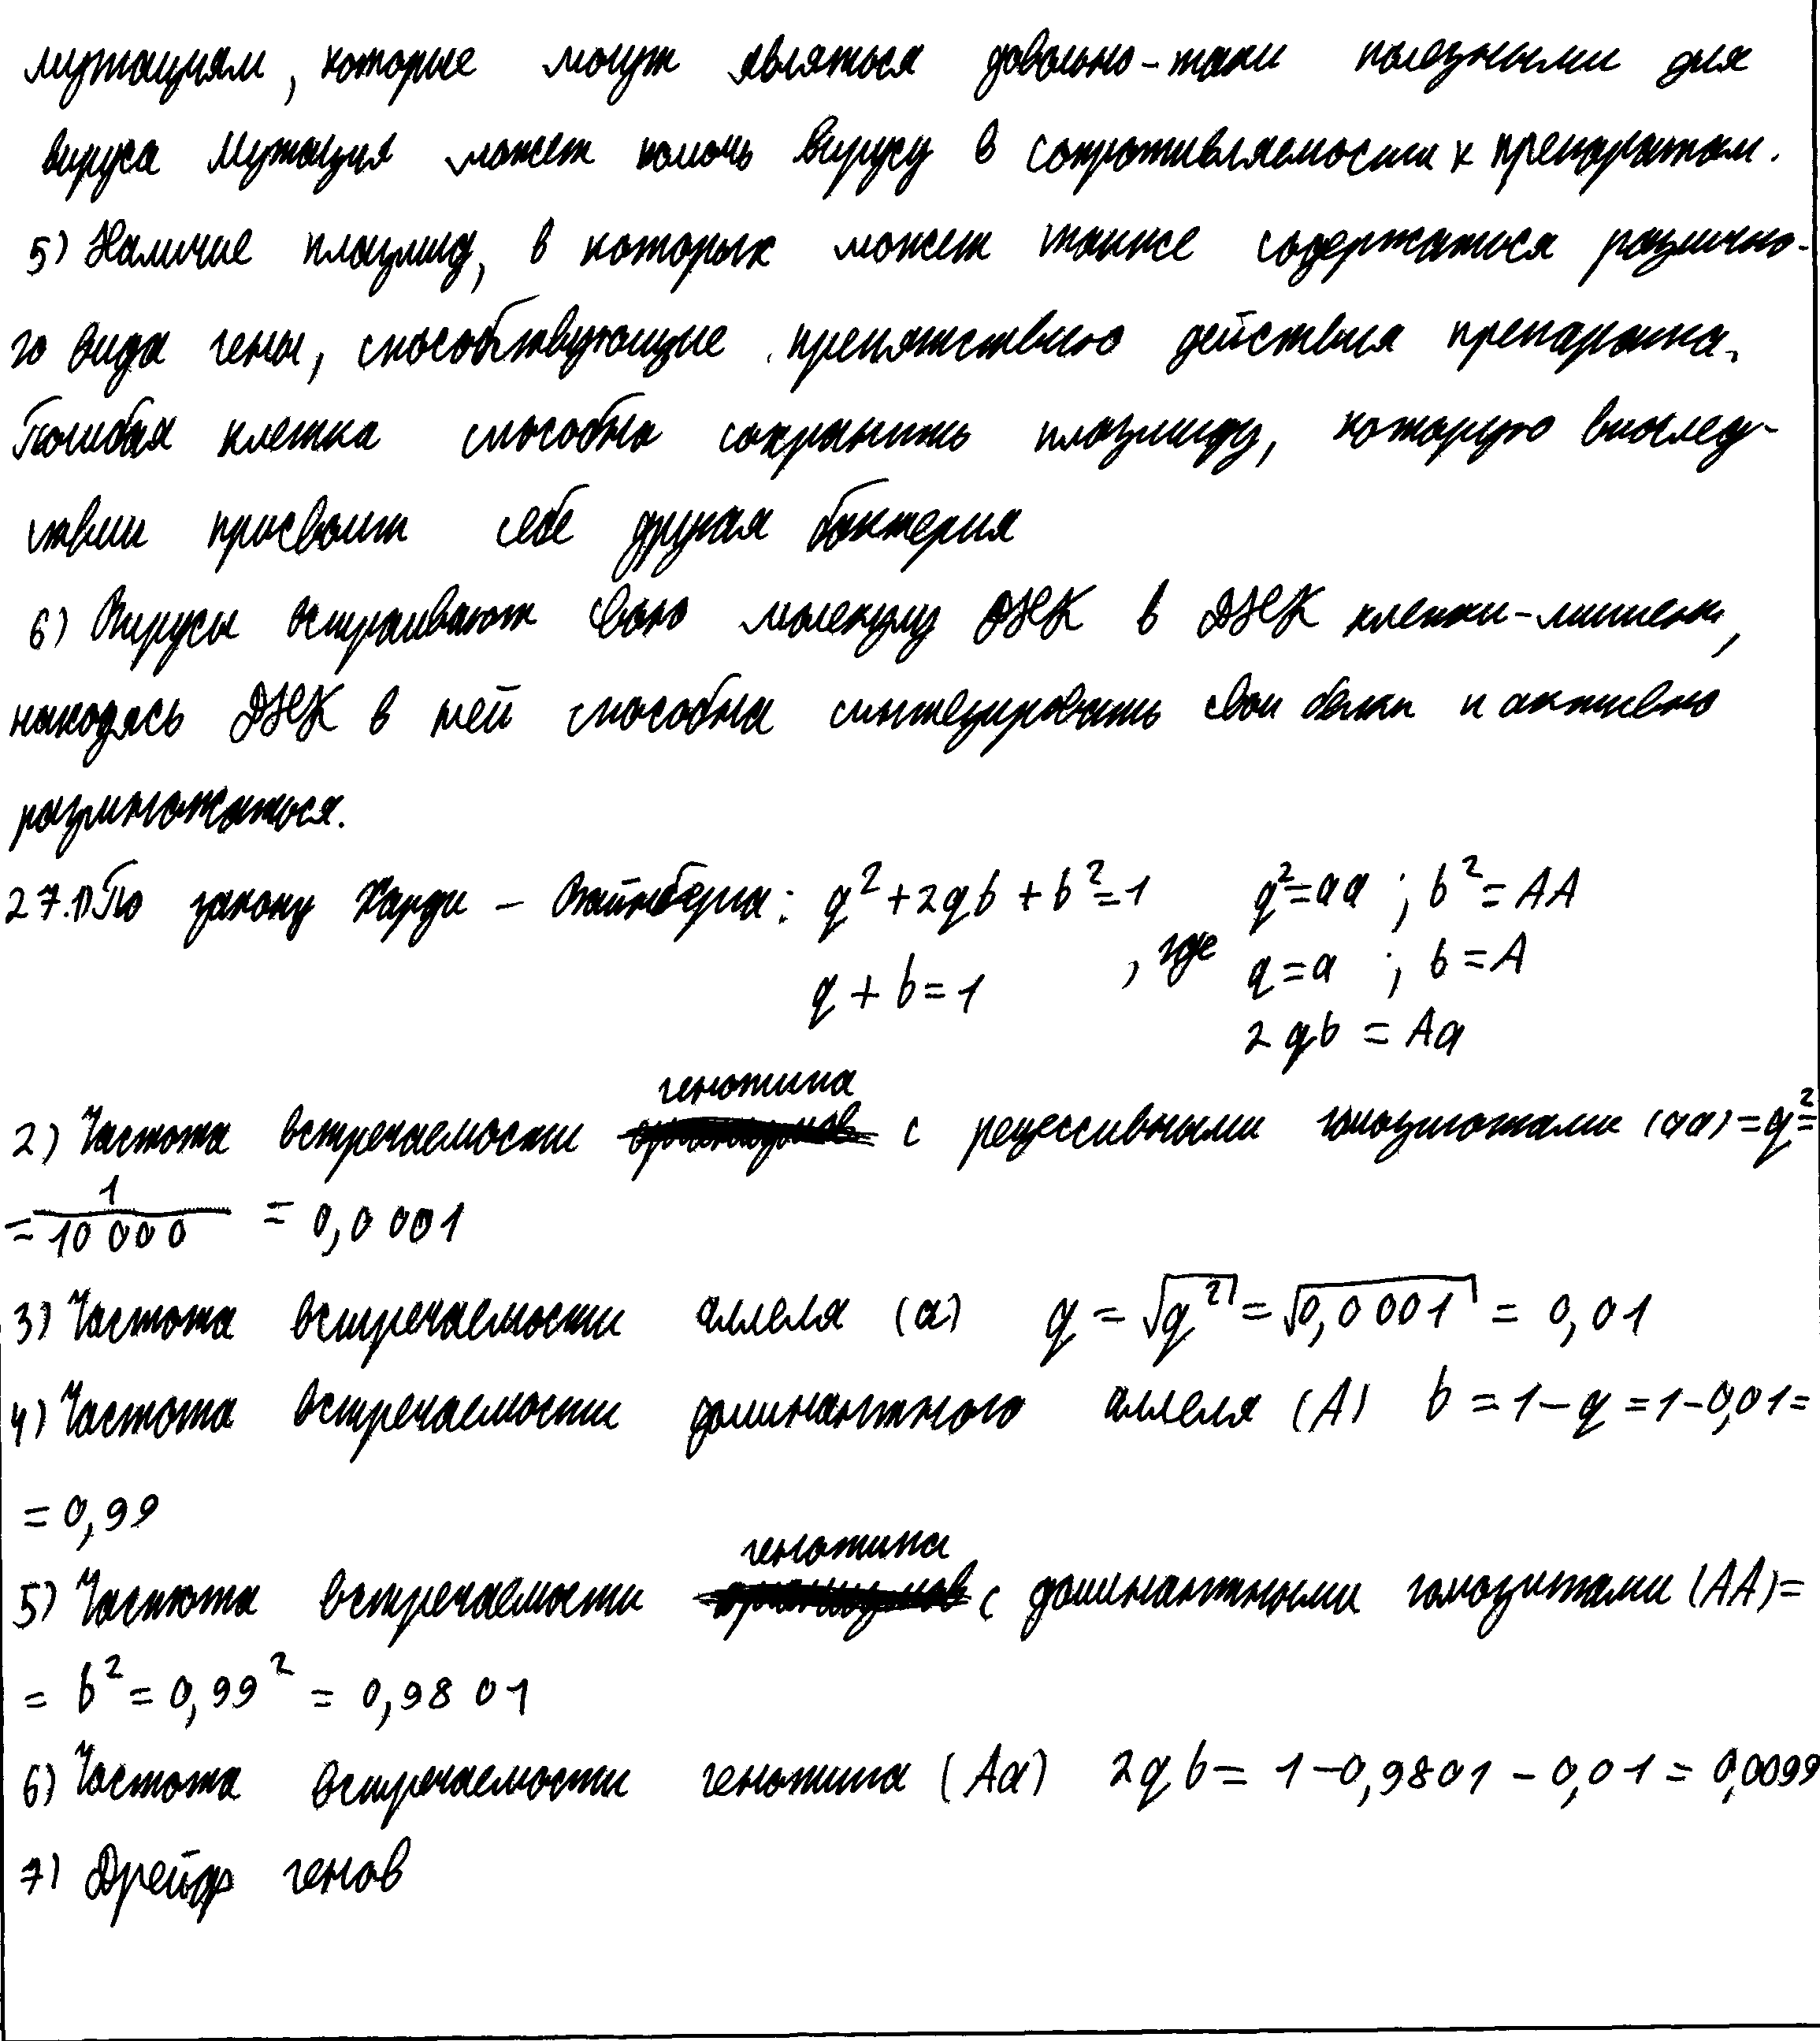 мутациям, которые могут являться довольно-таки полезными для
вируса Мутация может помочь вирусу в сопротивляемости к препаратам.
5) Наличие плазмид, в которых может также содержаться различно-
го вида гены, способствующие препятствию действия препарата.
Погибая клетка способна сохранить плазмиду, которую впослед-
ствии присвоит себе другая бактерия
6) Вирусы встраивают свою молекулу ДНК в ДНК клетки-мишени,
находясь ДНК в ней способна синтезировать свои белки и активно
размножаться.
27.1) По закону Харди - Вайнберга: q² + 2qb + b² = 1 q² = aa ; b² = AA
q + b = 1 , где q = a ; b = A
2qb = Aa
генотипа
2) Частота встречаемости с рецессивными гомозиготами (aa) = q² =
= 1/10 000 = 0,0001
3) Частота встречаемости аллеля (a) q = √q² = √0,0001 = 0,01
4) Частота встречаемости доминантного аллеля (A) b = 1 - q = 1 - 0,01 =
= 0,99
генотипа
5) Частота встречаемости с доминантными гомозигтами (AA) =
= b² = 0,99² = 0,9801
6) Частота встречаемости генотипа (Aa) 2qb = 1 - 0,9801 - 0,01 = 0,0099
7) Дрейф генов